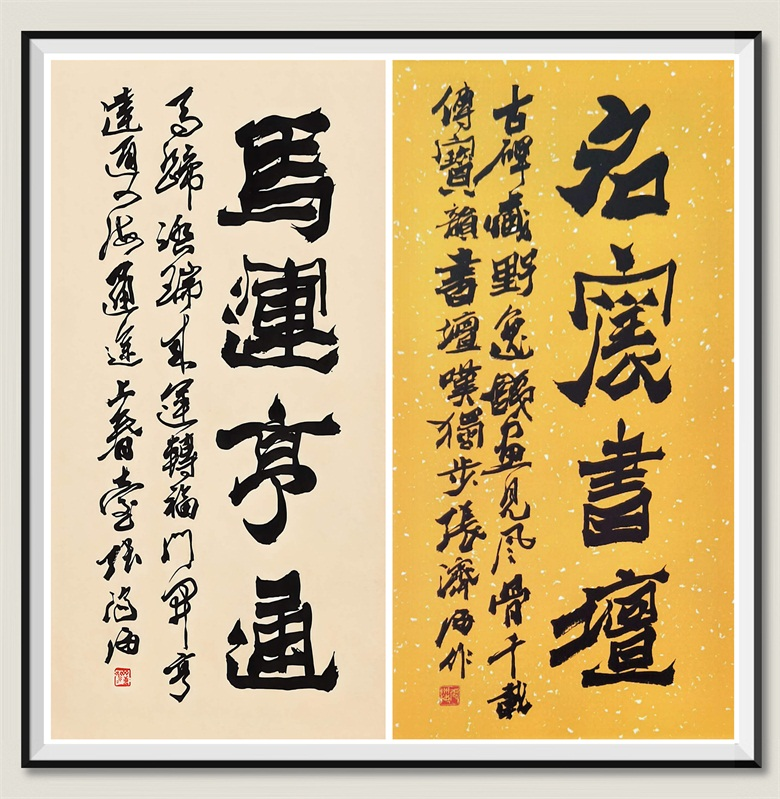 名震書壇
古碑藏野逸画見风骨千載
傳寶韻書壇嘆獨步張濟海作
馬運亨通
馬蹄踏瑞来運轉福門開亨
達通四海通途上春臺張濟海